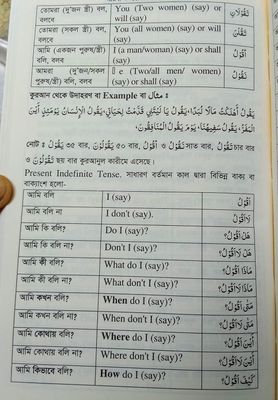 তোমরা (দু'জন স্ত্রী) বল, বলবে | You (Two women) (say) or will (say) | تَقُوْلَانِ
তোমরা (সকল স্ত্রী) বল, বলবে | You (all women) (say) or will (say) | تَقُلْنَ
আমি (একজন পুরুষ/স্ত্রী) বলি, বলব | I (a man/woman) (say) or shall (say) | أَقُوْلُ
আমরা (দু'জন/সকল পুরুষ/স্ত্রী) বলি, বলব | e (Two/all men/ women) (say) or shall (say) | نَقُوْلُ
কুরআন থেকে উদাহরণ বা Example বা مثال :
يَقُولُ أَهْلَكْتُ مَالًا لُبَدًا، يَقُولُ يَا لَيْتَنِي قَدَّمْتُ لِحَيَاتِي، يَقُولُ الْإِنْسَانُ يَوْمَئِذٍ أَيْنَ
الْمَفَرُّ، يَقُولُ سَفِيهُنَا، يَوْمَ يَقُولُ الْمُنَافِقُونَ،
নোট : يَقُوْلُ ৬৫ বার, يَقُوْلُوْنَ ৫০ বার, أَقُوْلُ ও نَقُوْلُ সাত বার, تَقُوْلُ চার বার
ও تَقُوْلُوْنَ ছয় বার কুরআনুল কারীমে এসেছে।
Present Indefinite Tense. সাধারণ বর্তমান কাল দ্বারা বিভিন্ন বাক্য বা
বাক্যাংশ হলো-
আমি বলি | I (say) | أَقُوْلُ
আমি বলি না | I don't (say). | لَا أَقُوْلُ
আমি কি বলি? | Do I (say)? | هَلْ أَقُوْلُ؟
আমি কি বলি না? | Don't I (say)? | هَلْ لَا أَقُوْلُ؟
আমি কী বলি? | What do I (say)? | مَاذَا أَقُوْلُ؟
আমি কী বলি না? | What don't I (say)? | مَاذَا لَا أَقُوْلُ؟
আমি কখন বলি? | When do I (say)? | مَتَى أَقُوْلُ؟
আমি কখন বলি না? | When don't I (say)? | مَتَى لَا أَقُوْلُ؟
আমি কোথায় বলি? | Where do I (say)? | أَيْنَ أَقُوْلُ؟
আমি কোথায় বলি না? | Where don't I (say)? | أَيْنَ لَا أَقُوْلُ؟
আমি কিভাবে বলি? | How do I (say)? | كَيْفَ أَقُوْلُ؟